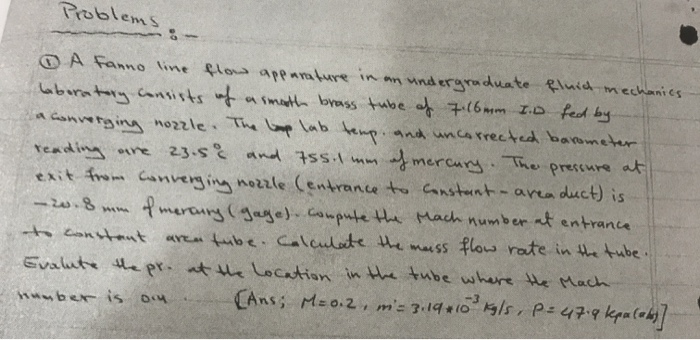 Problems :-
① A Fanno line flow apparature in an undergraduate fluid mechanics
laboratory consists of a smooth brass tube of 7.16mm I.D fed by
a converging nozzle. The lab temp. and uncorrected barometer
reading are 23.5°c and 755.1 mm of mercury. The pressure at
exit from converging nozzle (entrance to constant-area duct) is
-20.8 mm of mercury (gage). compute the Mach number at entrance
to constant area tube. Calculate the mass flow rate in the tube.
Evalute the pr. at the location in the tube where the Mach
number is 0.4. [Ans; M=0.2, m=3.19*10⁻³ kg/s, P=47.9 kpa(abs)]